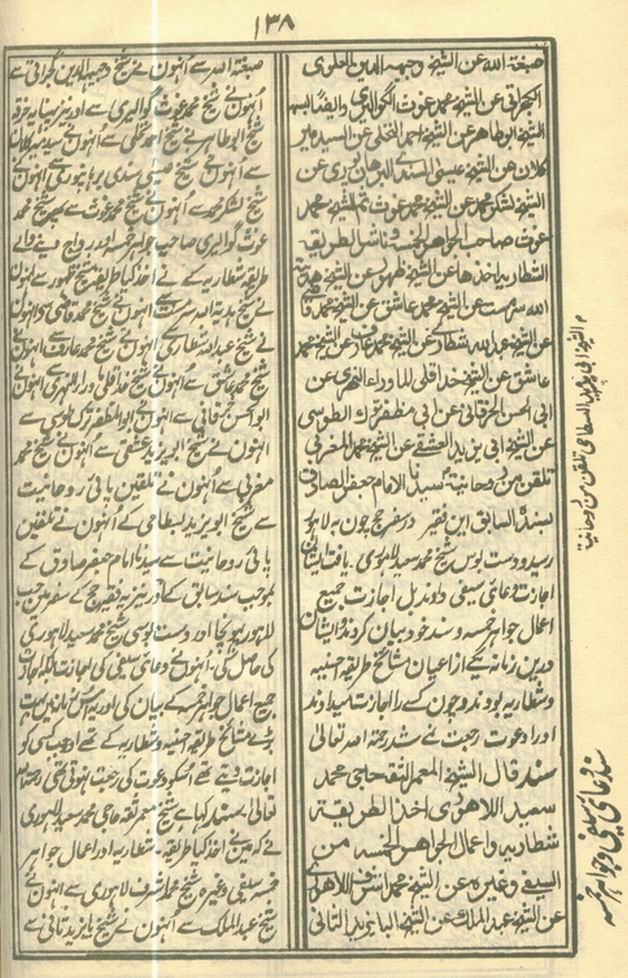 ۱۳۸
صبغة الله عن الشيخ وجيه الدين العلوى
الكجراتى عن الشيخ محمد غوث الكوالیری وايضا لبسه
الشيخ ابوطاهر عن الشيخ احمد النخلى عن السيد مير
كلان عن الشيخ عيسى السندى البرهانپورى عن
الشيخ لشكر محمد عن الشيخ محمد غوث ثم الشيخ محمد
غوث صاحب الجواهر الخمسة وناشر الطريقة
الشطارية اخذها عن الشيخ ظهور عن الشيخ هدية
الله سرمست عن الشيخ محمد عاشق عن الشيخ محمد
عن الشيخ عبد الله شطارى عن الشيخ محمد عارف عن الشيخ محمد
عاشق عن الشيخ خدا قلى الماوراء النهرى عن
ابى الحسن الخرقانى عن ابى مظفر ترك الطوسى
عن الشيخ ابى يزيد العشقى عن الشيخ محمد المغربى
تلقن من روحانية سيدنا الامام جعفر الصادق
بسنده السابق این فقیر در سفر حج چون به لاهور
رسید و دست بوس شیخ محمد سعید لاهوری یافت ایشان
اجازت دعائے سیفی دادند بل اجازت جمیع
اعمال جواهر خمسه و سند خود بیان کردند و ایشان
درین زمانه یکے از اعیان مشائخ طریقه احسنیه
و شطاریه بودند و چون کسے را اجازت میدادند
اورا دعوت رجعت نے شد رحمة الله تعالی
سند قال الشيخ المعمر الثقة حاجى محمد
سعيد اللاهورى اخذ الطريقة
شطاريه واعمال الجواهر الخمسه من
السيفى وغيره عن الشيخ محمد اشرف اللاهورى
عن الشيخ عبد الملك عن الشيخ البايزيد الثانى
صبغة اللہ سے اُنہوں نے شیخ وجیہ الدین گجراتی سے
اُنہوں نے شیخ محمد غوث گوالیری سے اور نیز پہنایہ خرقہ
شیخ ابوطاہر نے شیخ احمد نخلی سے اُنہوں نے سید میر کلان
سے اُنہوں نے شیخ عیسی سندی برہانپوری سے انہوں نے
شیخ لشکر محمد سے اُنہوں نے شیخ محمد غوث سے پھر شیخ محمد
غوث گوالیری صاحب جواہر خمسہ اور رواج دینے والے
طریقہ شطاریہ کے نے اخذ کیا طریقہ شیخ ظہور سے انہوں
نے شیخ ہدیة اللہ سرمست سے انہوں نے شیخ محمد قاضی سے انہوں
نے شیخ عبداللہ شطاری سے انہوں نے شیخ محمد عارف سے انہوں نے
شیخ محمد عاشق سے اُنہوں نے شیخ خدا قلی ماوراء النہری سے انہوں نے
ابوالحسن خرقانی سے انہوں نے ابوالمظفر ترک طوسی سے
انہوں نے شیخ ابویزید عشقی سے اُنہوں نے شیخ محمد
مغربی سے اُنہوں نے تلقین پائی روحانیت
سے شیخ ابویزید بسطامی کے اُنہوں نے تلقین
پائی روحانیت سے سیدنا امام جعفر صادق کے
بموجب سند سابق کے اور نیز یہ فقیر حج کے سفر مین جب
لاہور پہونچا اور دست بوسی شیخ محمد سعید لاہوری
کی حاصل کی انہوں نے دعائے سیفی کی اجازت بلکہ اجازت
جمیع اعمال جواہر خمسہ کے بیان کی اور یہ اس زمانہ مین بہت
بڑے مشائخ طریقہ احسنیہ و شطاریہ کے تھے اور جب کسی کو
اجازت دیتے تھے اُسکو دعوت کی رجعت نہوتی تھی رحمة اللہ
تعالی بسند کہا ہے شیخ معمر ثقہ حاجی محمد سعید لاہوری
نے کہ مینے اخذ کیا طریقہ شطاریہ اور اعمال جواہر
خمسہ سیفی وغیرہ شیخ محمد اشرف لاہوری سے انہوں نے
شیخ عبدالملک سے اُنہوں نے شیخ بایزید ثانی سے
م الشيخ ابى يزيد البسطامى تلقن من روحانية
سند دعائے سیفی و جواہر خمسہ